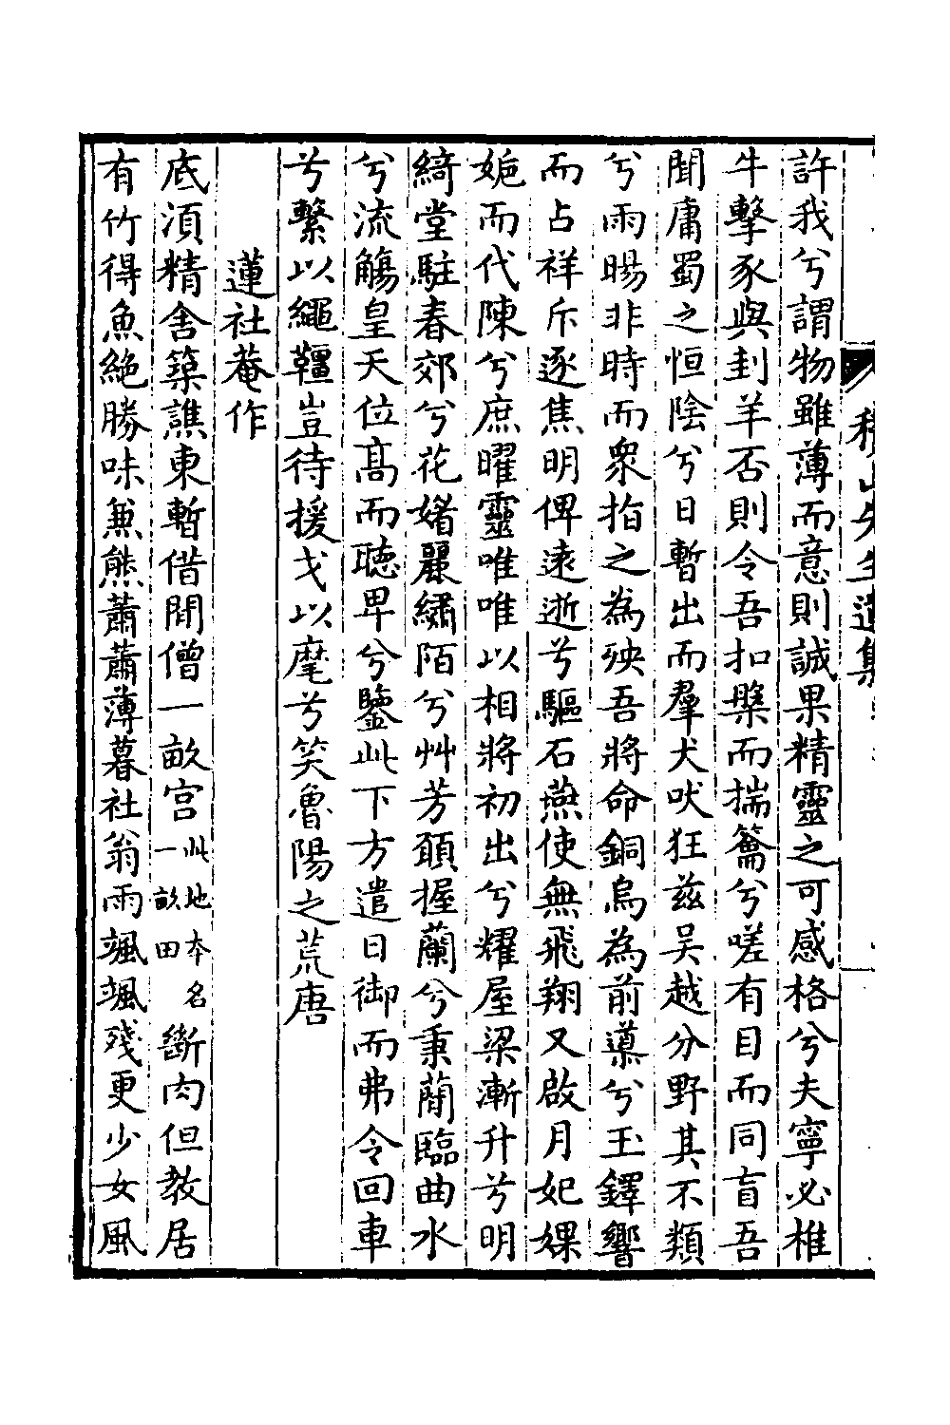 許我兮謂物雖薄而意則誠果精靈之可感格兮夫寧必椎
牛擊豕與刲羊否則令吾扣槃而揣籥兮嗟有目而同盲吾
聞庸蜀之恒陰兮日暫出而羣犬吠狂兹吴越分野其不類
兮雨暘非時而衆指之為殃吾將命銅烏為前導兮玉鐸響
而占祥斥逐焦明俾遠逝兮驅石燕使無飛翔又啟月妃婐
㛂而代陳兮庶曜靈唯唯以相將初出兮耀屋梁漸升兮明
綺堂駐春郊兮花婼麗繡陌兮艸芳頤握蘭兮秉蕑臨曲水
兮流觴皇天位髙而聽卑兮鑒此下方遣日御而弗令回車
兮繫以繩韁豈待援戈以麾兮笑魯陽之荒唐
蓮社菴作
底湏精舍築譙東暫借閒僧一畝宫此地本名一畝田斷肉但教居
有竹得魚絶勝味兼熊蕭蕭薄暮社翁雨颯颯殘更少女風
稽山先生遺集